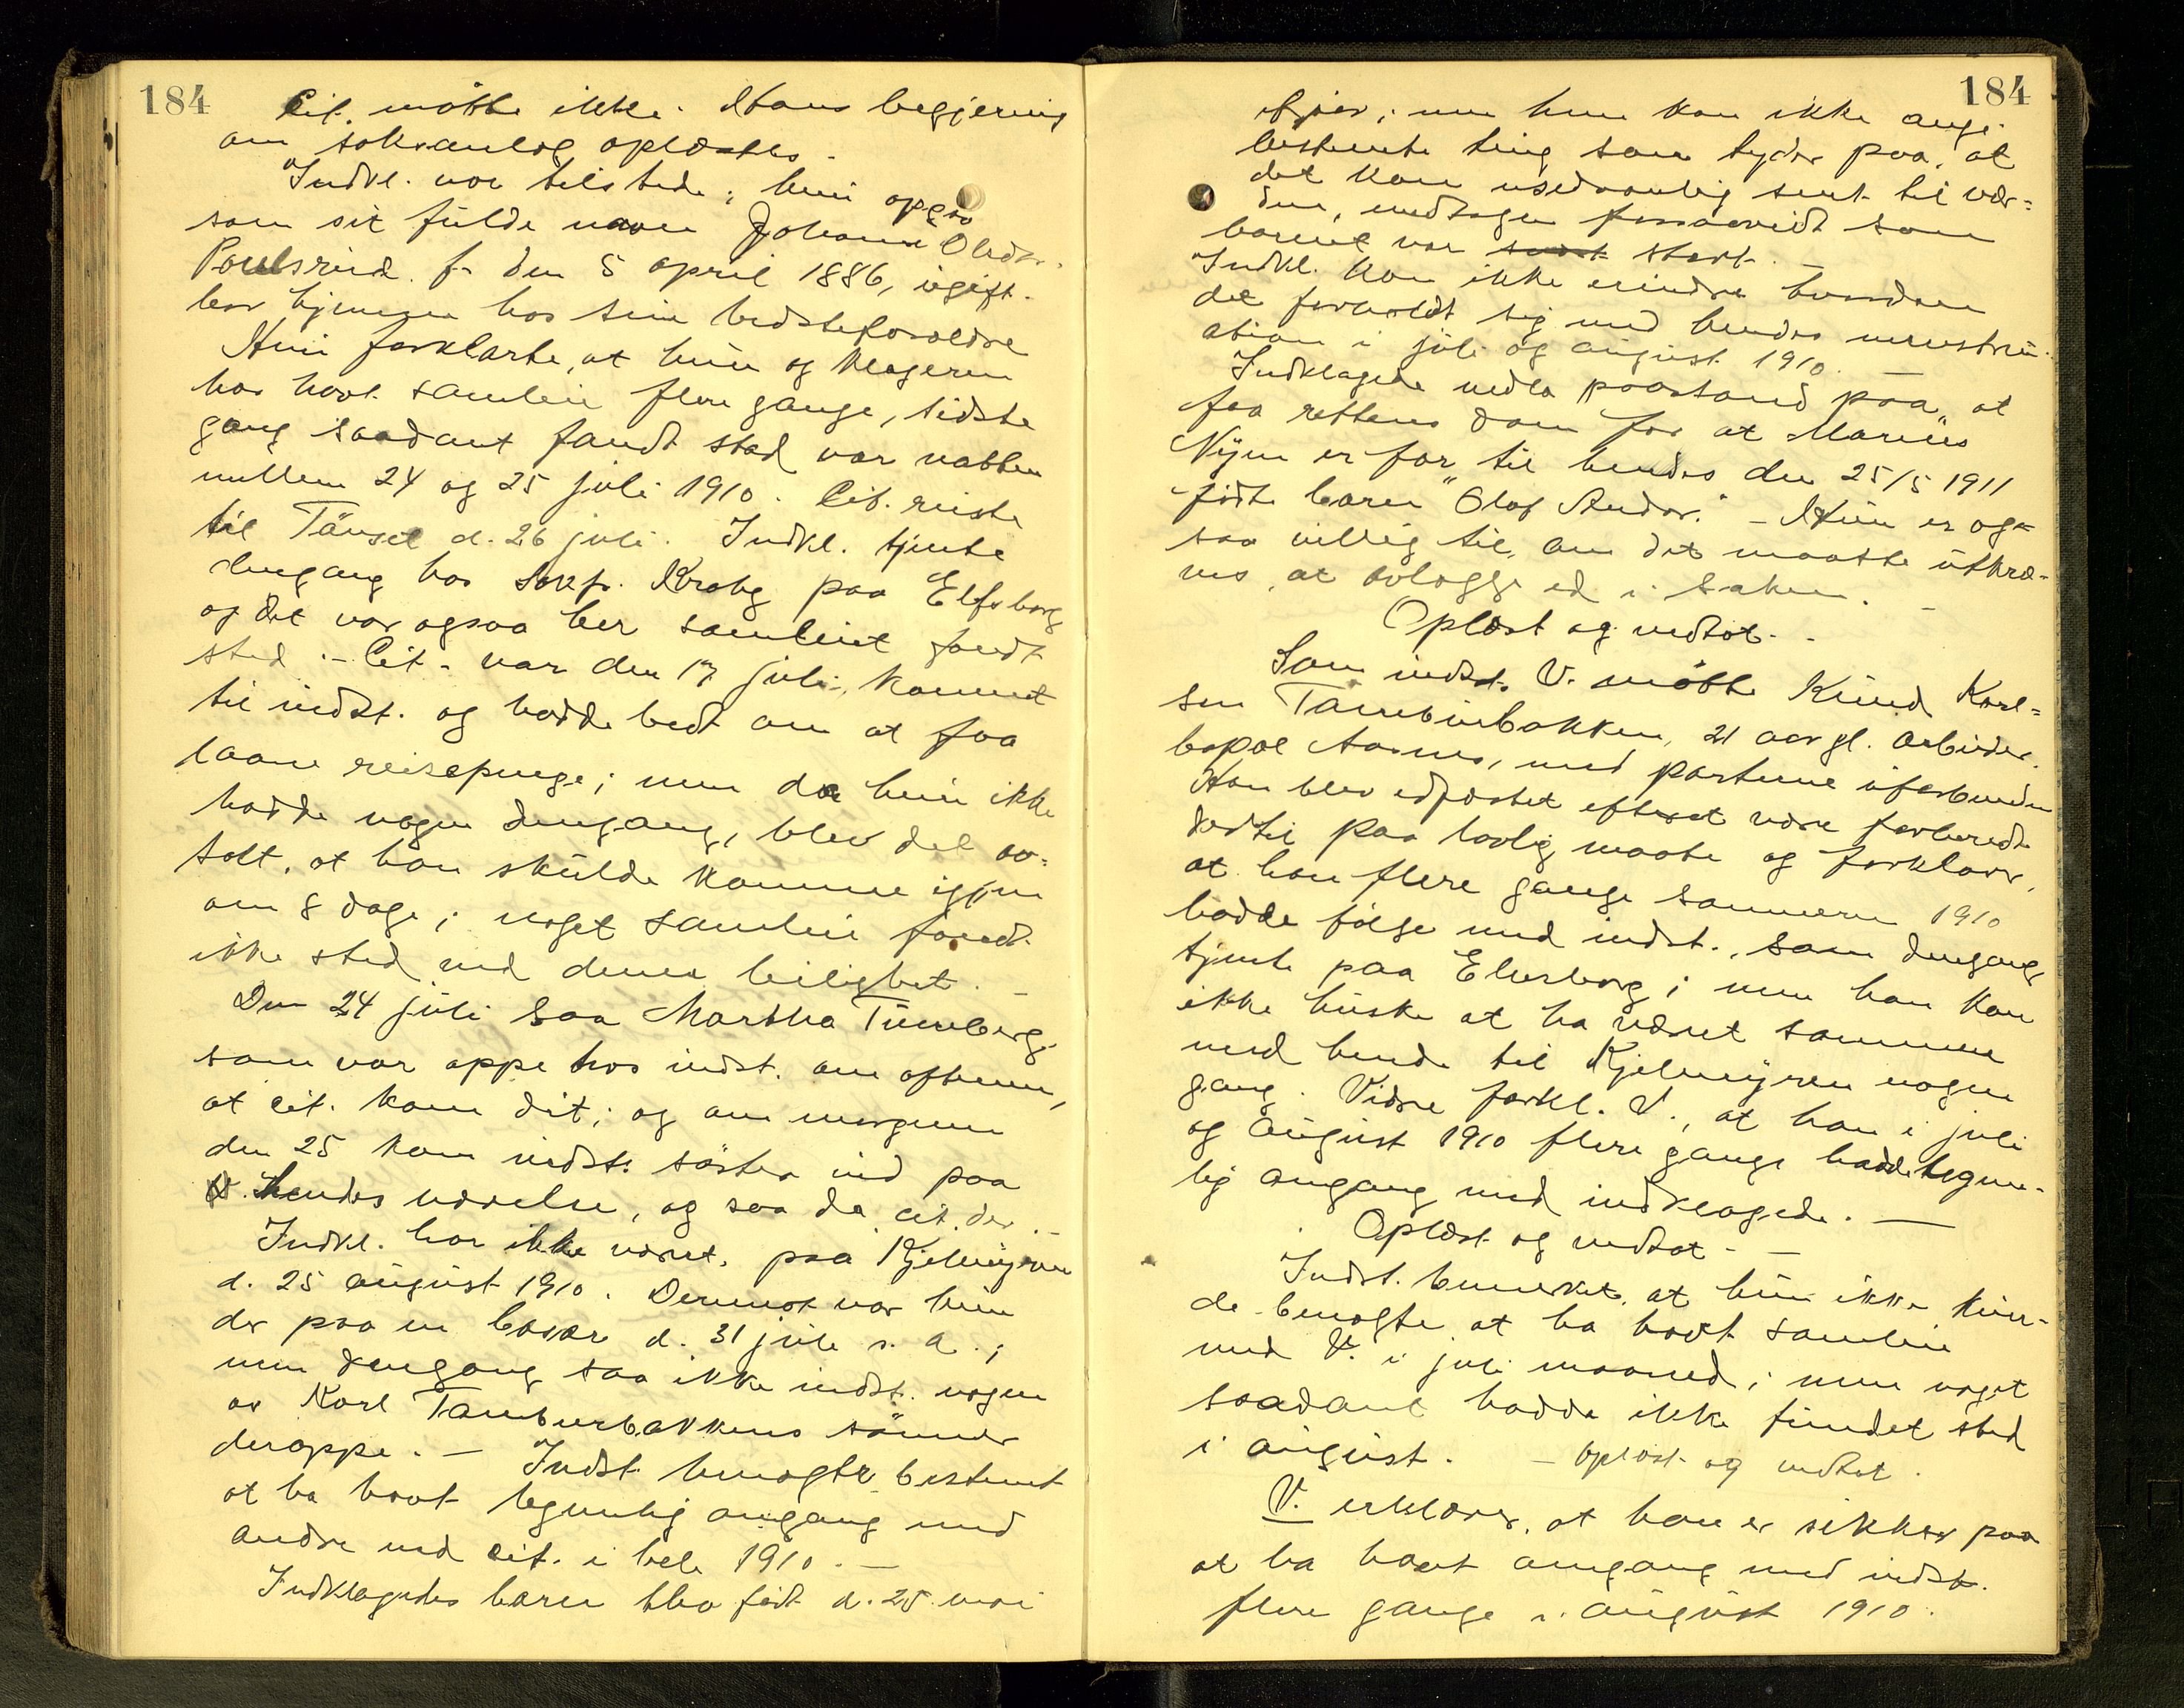 184
Cit. møtte ikke. Hans begjæring
om saksanlæg oplæstes.
Indkl. var tilstede; hun opgav
som sit fulde navn Johanne Olsdtr.
Poulsrud f. den 5 april 1886, ugift.
bor hjemme hos sine bedsteforældre
Hun forklarte, at hun og klageren
har havt samleie flere gange, sidste
gang saadant fandt sted var natten
mellem 24 og 25 juli 1910. Cit. reiste
til Tönset d. 26 juli. Indkl. tjente
dengang hos Sakf. Krabg paa Elfsborg
og det var ogsaa her samleiet fandt
sted. – Cit. var den 17 juli kommet
til indst. og hadde bedt om at faa
laane reisepenge; men da hun ikke
hadde nogen dengang, blev det av=
talt, at han skulde komme igjen
om 8 dage; noget samleie fandt
ikke sted ved denne leilighet. –
Den 24 juli saa Martha Tureberg,
som var oppe hos indst. om aftenen,
at cit. kom dit; og om morgenen
den 25 kom indst. søster ind paa
hendes værelse, og saa da cit. der.
Indkl. har ikke været paa Kjelmyren
d. 25 august 1910. Derimot var hun
der paa en basar d. 31 juli s. a.;
men dengang saa ikke indst. nogen
av Karl Tamburbakkens sønner
deroppe. – Indst. benegter bestemt
at ha havt legemlig omgang med
andre end cit. i hele 1910. –
Indklagedes barn blev født d. 25 mai
184
ifjor; men hun kan ikke angi
bestemte ting som tyder paa, at
det kom usedvanlig sent til ver=
den, undtagen forsaavidt som
barnet var svært stort. –
Indkl. kan ikke erindre hvordan
det forholdt sig med hendes menstru-
ation i juli og august 1910. –
Indklagede nedla paastand paa, at
faa rettens dom for at Marius
Nyen er far til hendes den 25/5 1911
fødte barn "Olaf Andor." – Hun er og=
saa villig til, om det maatte utkræ-
ves, at avlægge ed i saken. –
Oplæst og vedtat. -
Som indst. V. møtte Knud Karl=
sen Tamburbakken, 21 aar gl. arbeider.
bopæl Aasnes, med parterne uforbunden
Han blev edfæstet efterat være forberedt
dertil paa lovlig maate og forklarer,
at han flere gange sommeren 1910
hadde følge med indst., som dengang
tjente paa Elverborg; men han kan
ikke huske at ha været sammen
med hende til Kjelmyren nogen
gang. Videre forkl. V., at han i juli
og august 1910 flere gange hadde legem-
lig omgang med indklagede. –
Oplæst og vedtat. –
Indst. bemerket, at hun ikke kun-
de benegte at ha havt samleie
med V. i juli maaned; men noget
saadant hadde ikke fundet sted
i august. – Oplæst og vedtat.
V. erklærer, at han er sikker paa
at ha havt omgang med indst.
flere gange i august 1910.